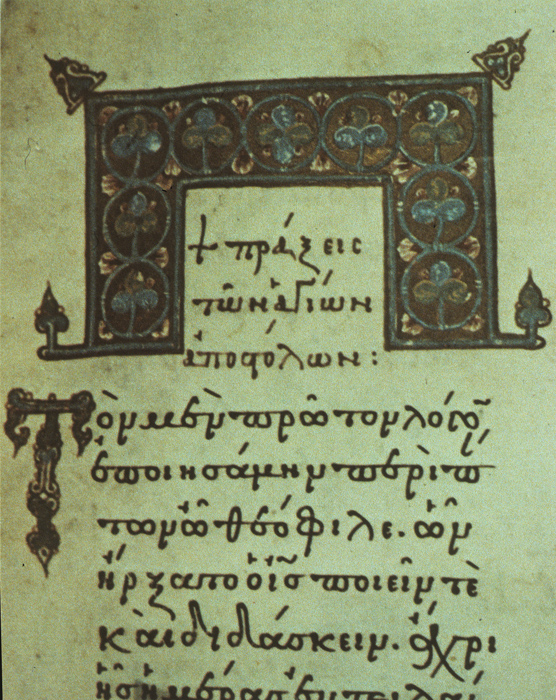 + πράξεις
τῶν ἁγίων
ἀποστόλων:
Τὸν μὲν πρῶτον λόγο͂
ἐποιησάμην περὶ πά
των ὦ θεόφιλε. ὧν
ἤρξατο ὁ ἰ̅ς̅ ποιεῖν τὲ
καὶ διδάσκειν. ἄχρι
ἧς ἡμέρας ἐντειλά